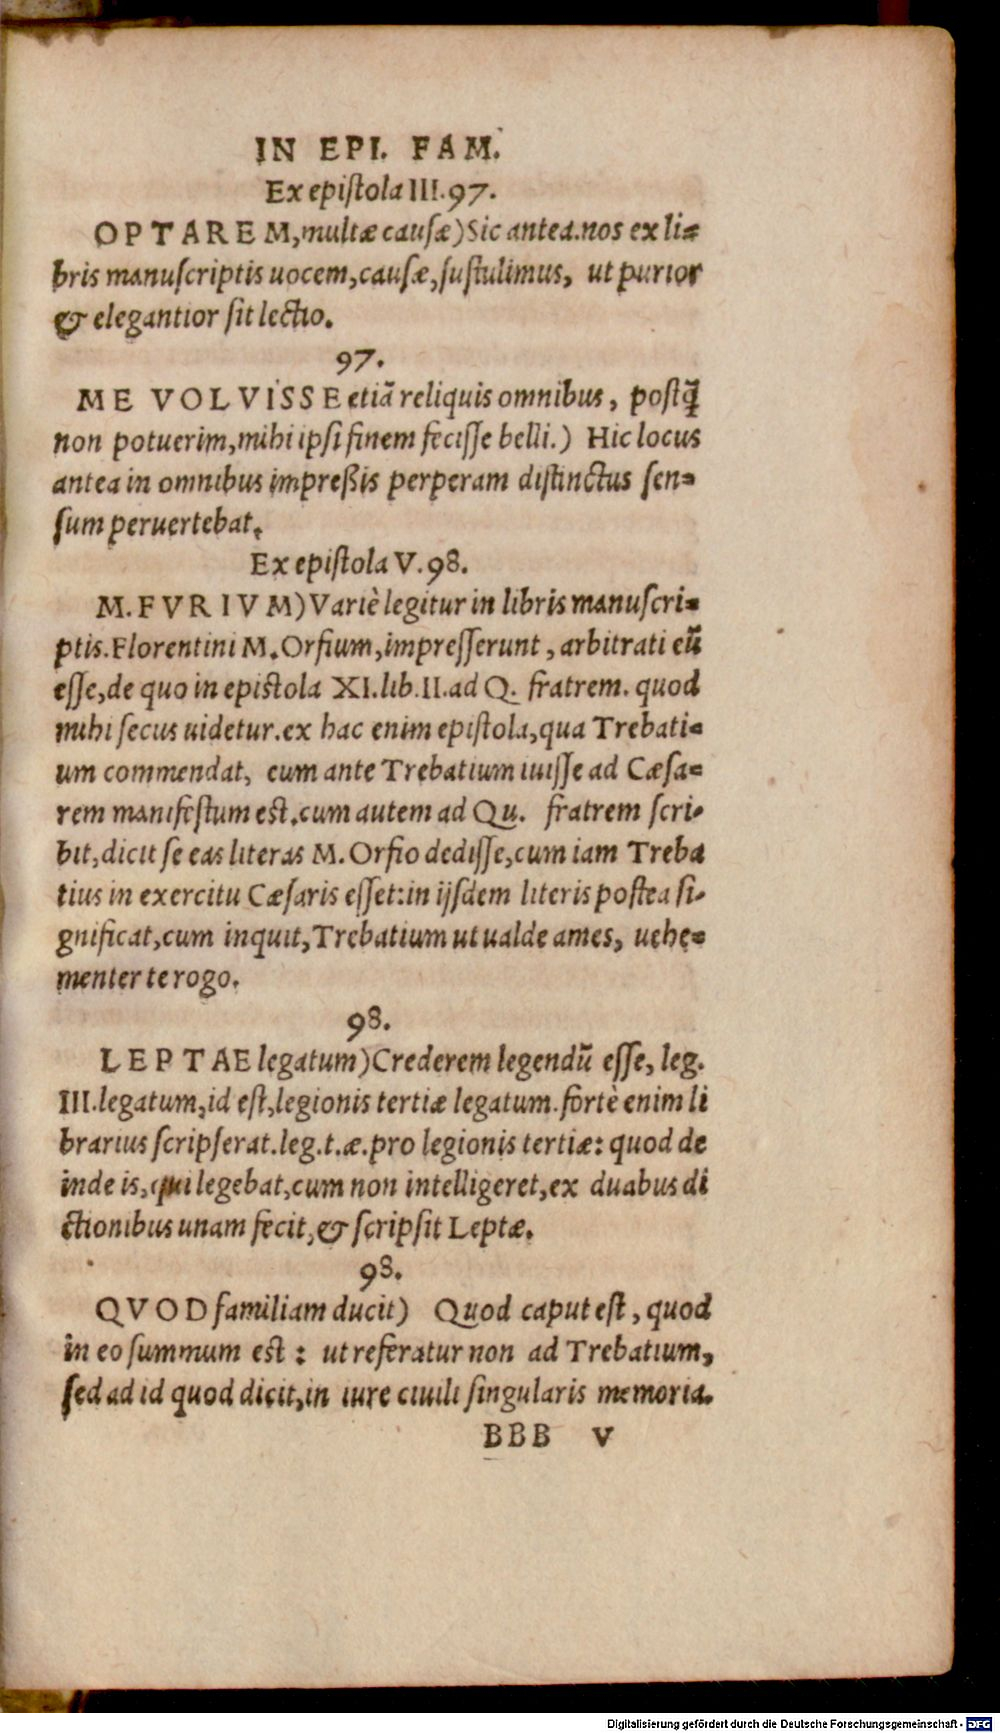 IN EPI. FAM.
Ex epistola III.97.
OPTAREM,multæ causæ)Sic antea.nos ex li-
bris manuscriptis uocem,causæ,sustulimus, ut purior
& elegantior sit lectio.
97.
ME VOLVISSE etiã reliquis omnibus, postq̃
non potuerim,mihi ipsi finem fecisse belli.) Hic locus
antea in omnibus impreßis perperam distinctus sen-
sum peruertebat.
Ex epistola V.98.
M.FVRIVM)Variè legitur in libris manuscri-
ptis.Florentini M.Orfium,impresserunt, arbitrati eũ
esse,de quo in epistola XI.lib.II.ad Q. fratrem. quod
mihi secus uidetur.ex hac enim epistola,qua Trebati-
um commendat, eum ante Trebatium iuisse ad Cæsa-
rem manifestum est.cum autem ad Qu. fratrem scri-
bit,dicit se eas literas M.Orfio dedisse,cum iam Treba
tius in exercitu Cæsaris esset:in ijsdem literis postea si-
gnificat,cum inquit,Trebatium ut ualde ames, uehe-
menter te rogo.
98.
LEPTAE legatum)Crederem legendũ esse, leg.
III.legatum,id est,legionis tertiæ legatum.fortè enim li
brarius scripserat.leg.t.æ.pro legionis tertiæ: quod de
inde is,qui legebat,cum non intelligeret,ex duabus di
ctionibus unam fecit,& scripsit Leptæ.
98.
QVOD familiam ducit) Quod caput est, quod
in eo summum est : ut referatur non ad Trebatium,
sed ad id quod dicit,in iure ciuili singularis memoria.
BBB v
Digitalisierung gefördert durch die Deutsche Forschungsgemeinschaft - DFG